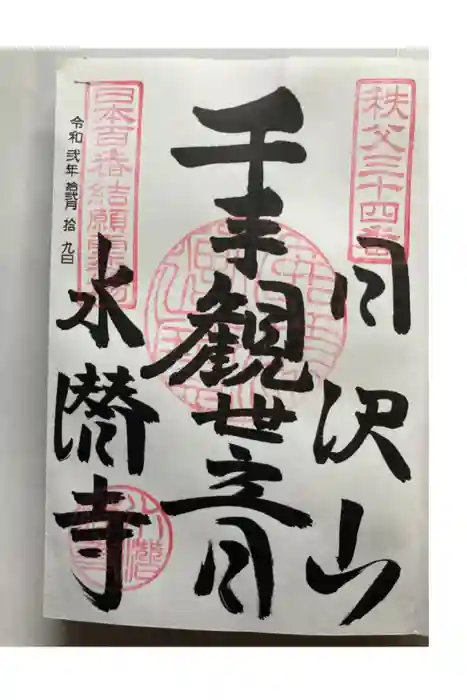 秩父三十四番
日沢山
千手観世音
水潜寺
日本百番結願霊場
令和弐年拾弐月拾九日